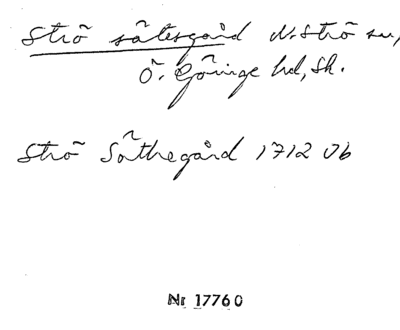 Strö sätesgård N. Strö sn,
Ö. Göinge hd, Sk.
Strö Säthegård 1712 Jb
Nr 17760